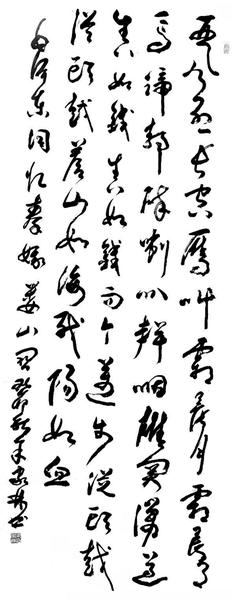 西风烈长空雁叫霜晨月霜晨月
马蹄声碎喇叭声咽雄关漫道
真如鐵真如鐵而今迈步從头越
從头越苍山如海残阳如血
毛泽东词忆秦娥娄山关癸卯秋书